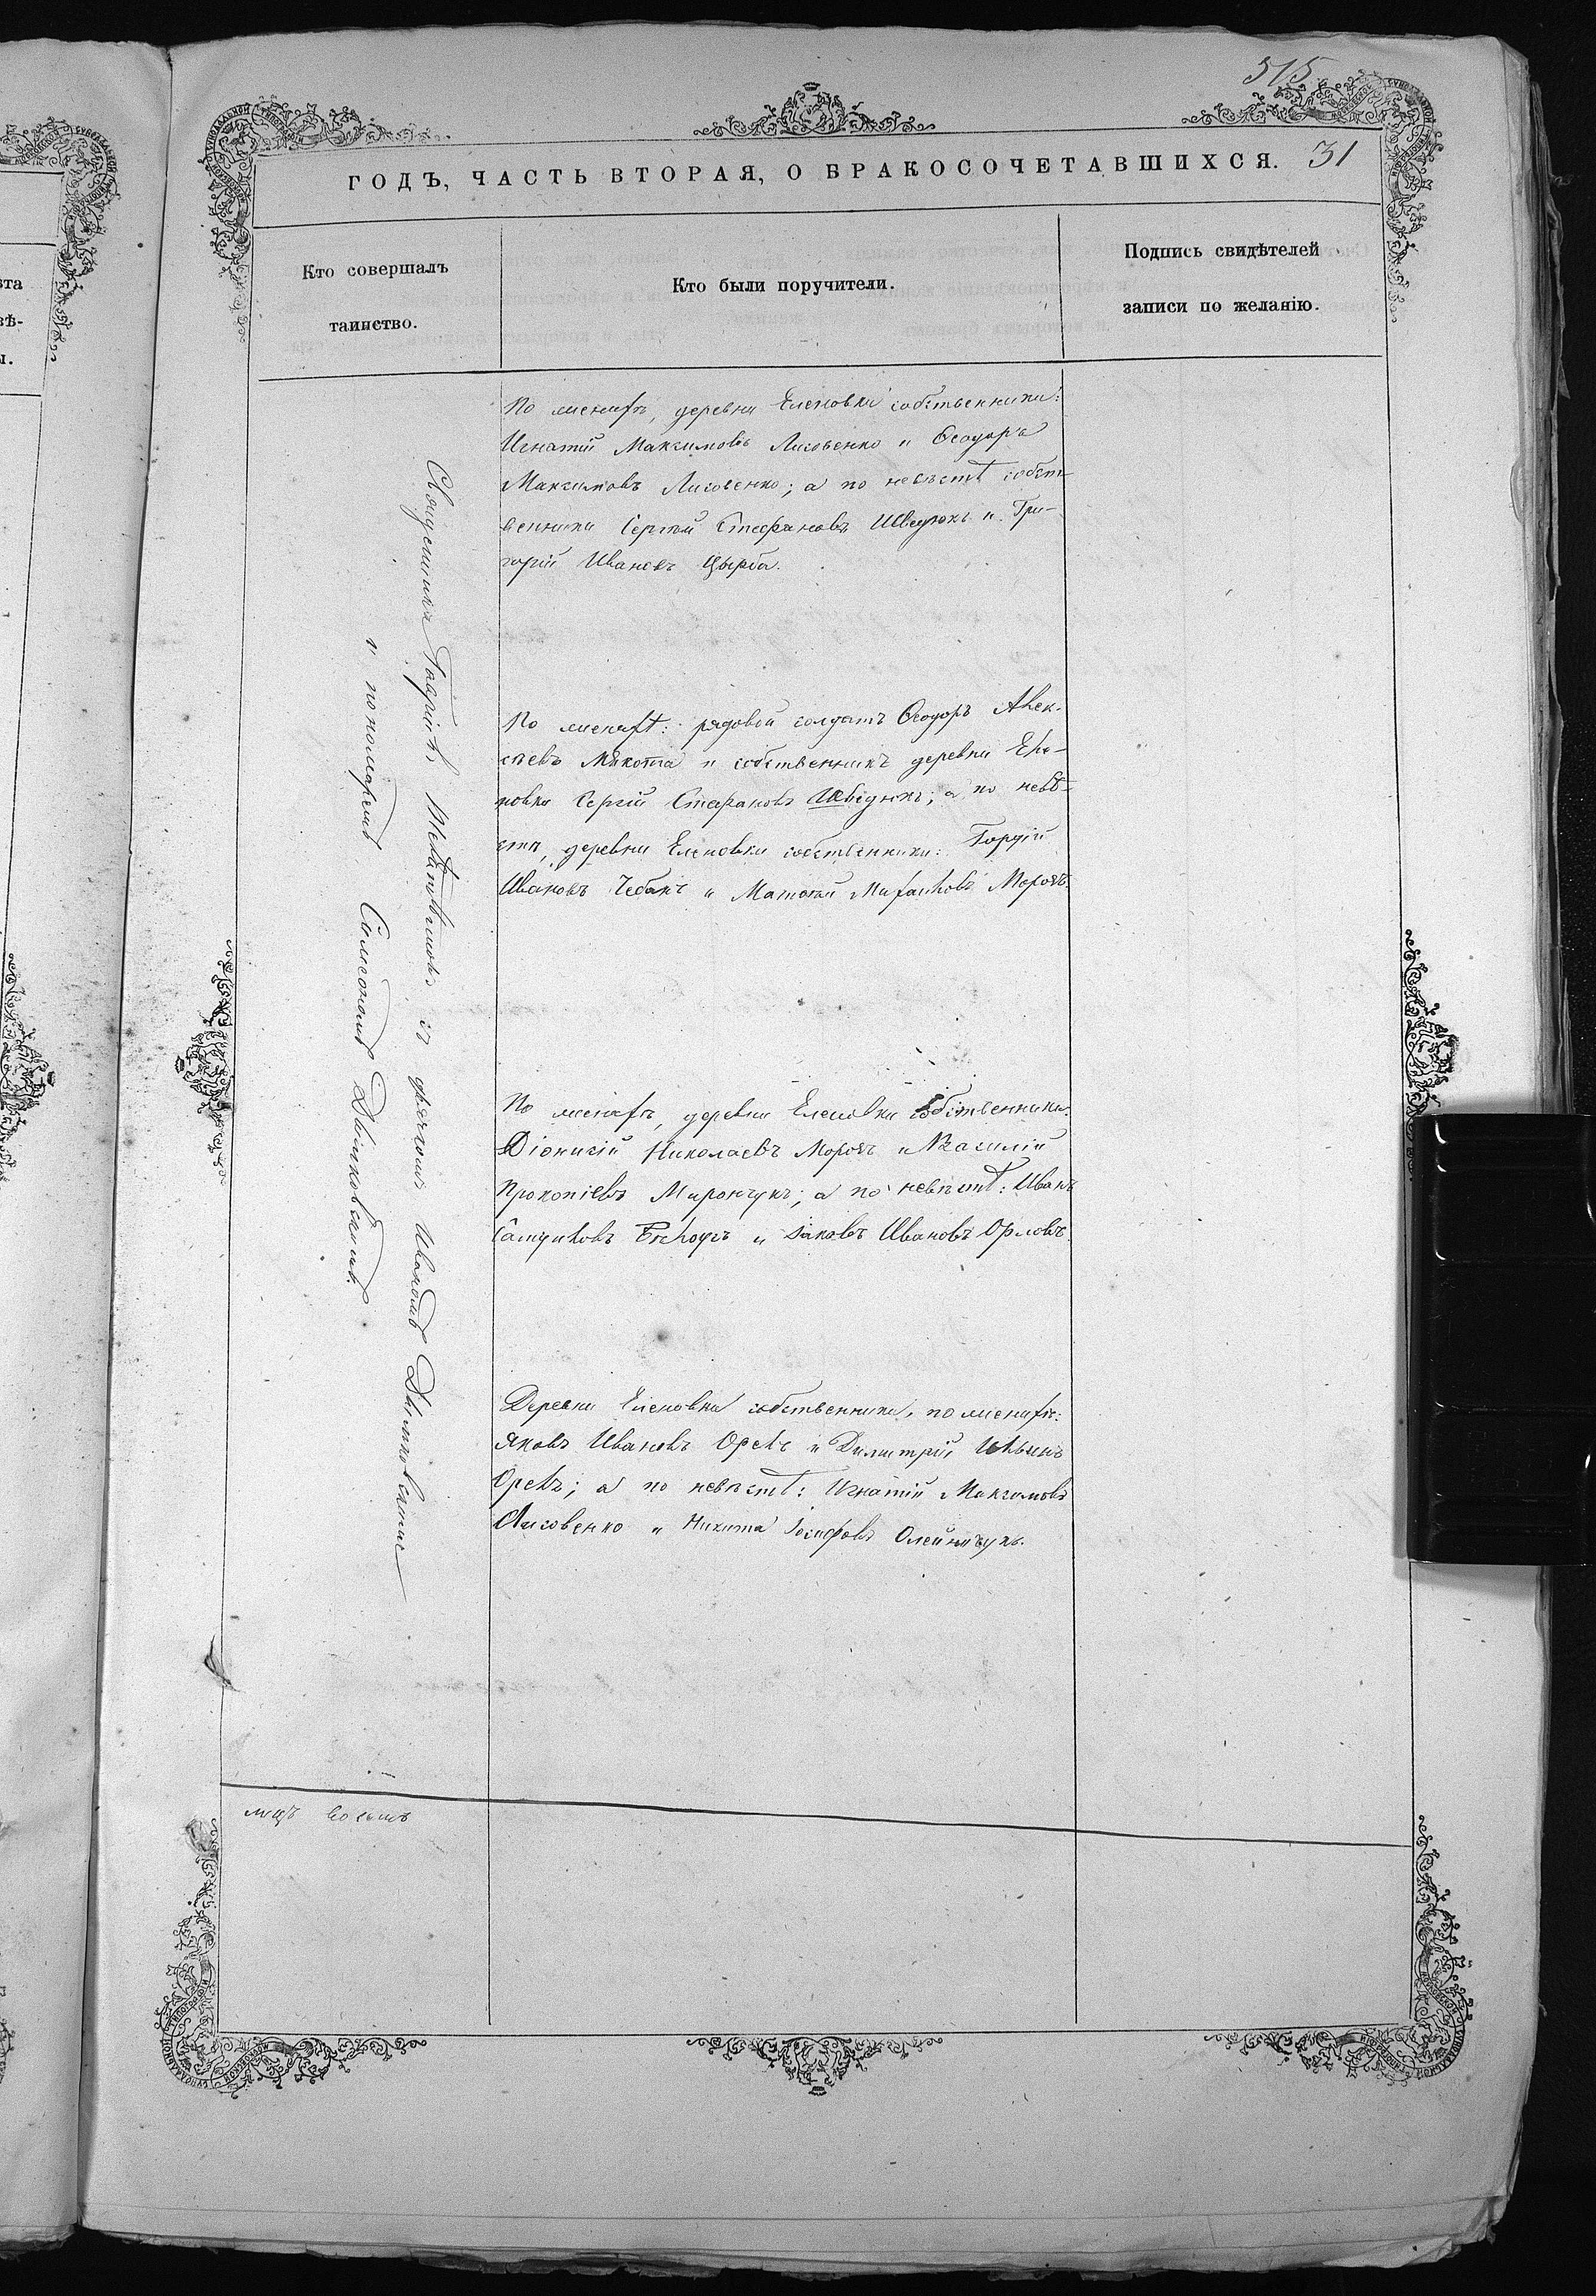 515
31
ГОДЪ, ЧАСТЬ ВТОРАЯ, О БРАКОСОЧЕТАВШИХСЯ.
Кто совершалъ
таинство.
Кто были поручители.
Подпись свидѣтелей
записи по желанію.
Священникъ Георгій съ дьячкомъ Иваномъ Дымковскимъ
и пономаремъ Соломономъ Дымковскимъ.
По женихѣ, деревни Еленовки собственники:
Игнатій Максимовъ Лисовенко и Ѳеодоръ
Максимовъ Лисовенко; а по невѣстѣ собст-
венники Сергій Стефановъ Шведюкъ и Гри-
горій Ивановъ Цырба.
По женихѣ: рядовой солдатъ Ѳеодоръ Алек-
сѣевъ Мякота и собственникъ деревни Еле-
новки Сергій Стефановъ Шведюкъ; а по невѣ-
стѣ, деревни Еленовки собственники: Гордій
Ивановъ Чебанъ и Матѳей Михаиловъ Морозъ.
По женихѣ, деревни Еленовки собственники:
Діонисій Николаевъ Морозъ и Василій
Прокопіевъ Мирончукъ; а по невѣстѣ: Иванъ
Самуиловъ и Яковъ Ивановъ Орловъ.
Деревни Еленовки собственники, по женихѣ:
Яковъ Ивановъ Орелъ и Димитрій Ильинъ
Орелъ; а по невѣстѣ: Игнатій Максимовъ
Лисовенко и Никита Іосифовъ Олейничукъ.
лицъ восемь
ста
вѣ-